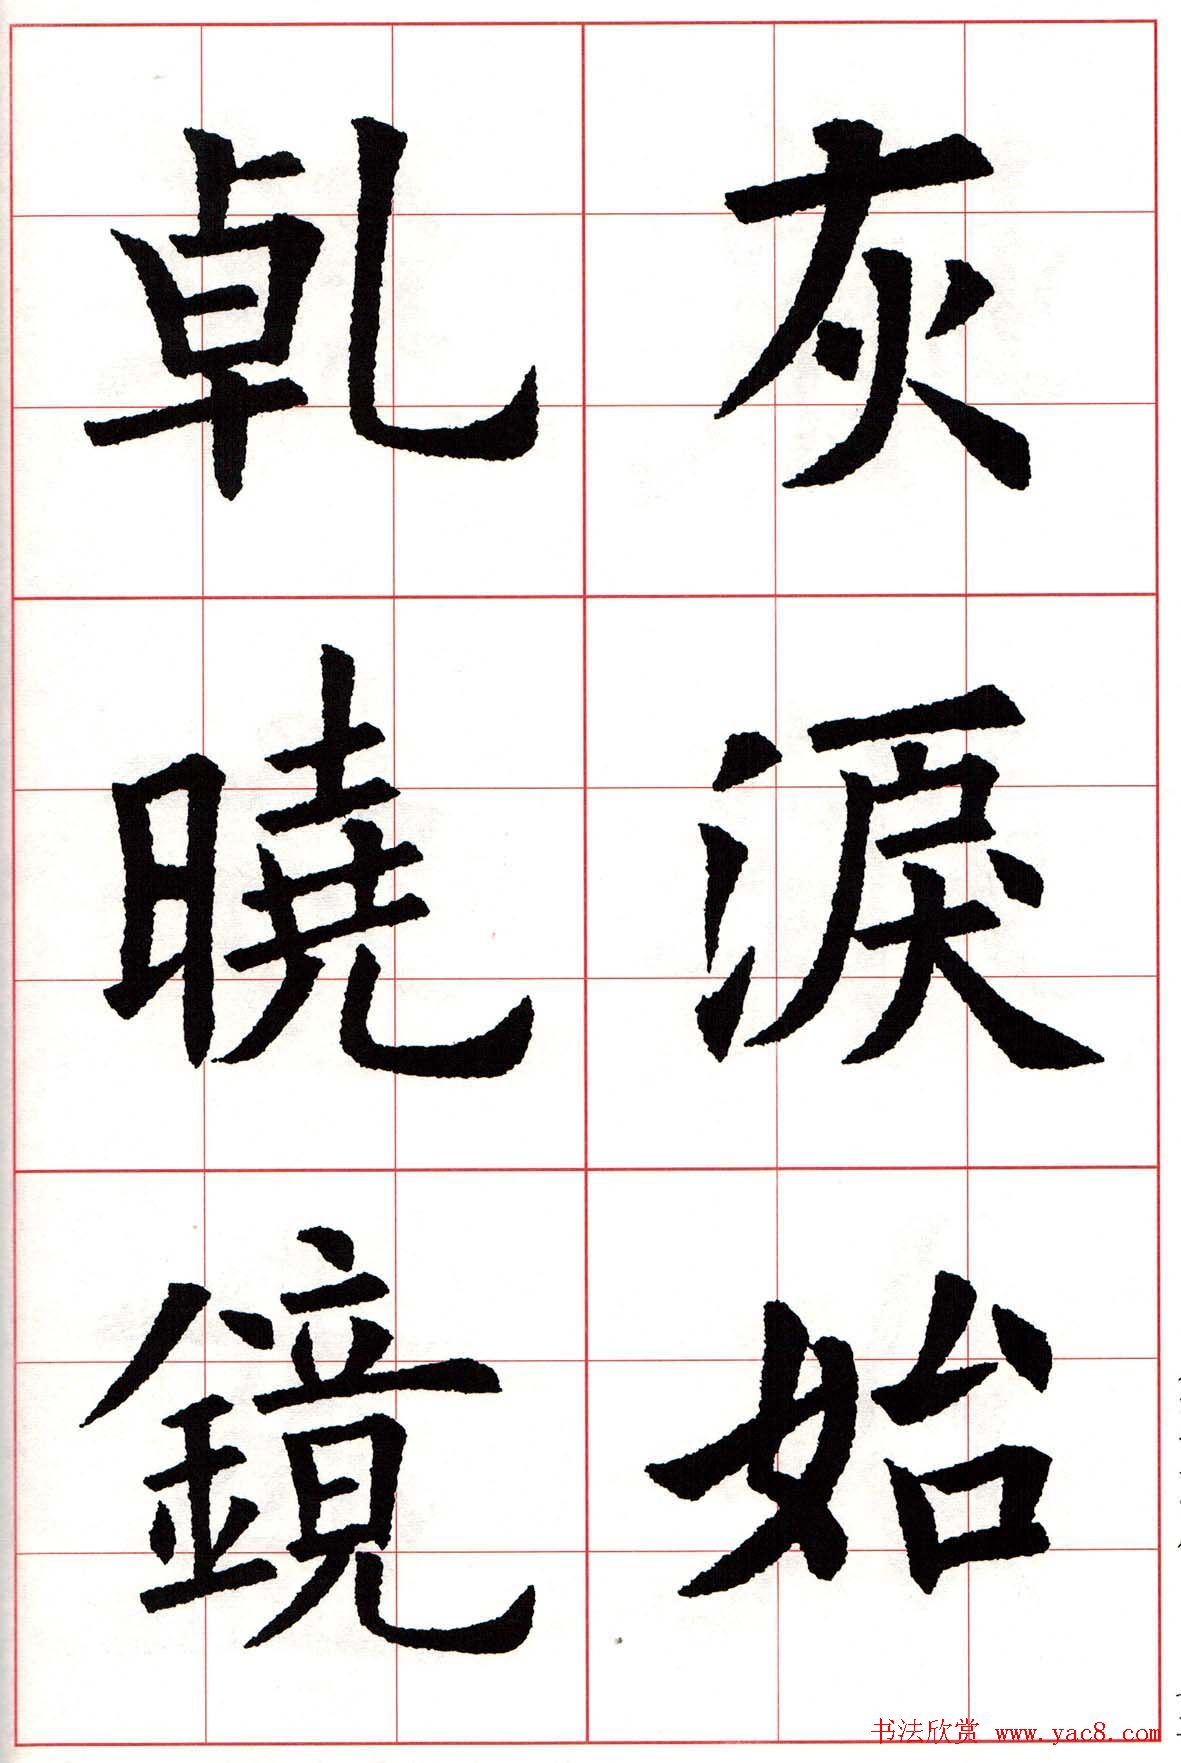 灰淚始
乹曉鏡
书法欣赏 www.yac8.com